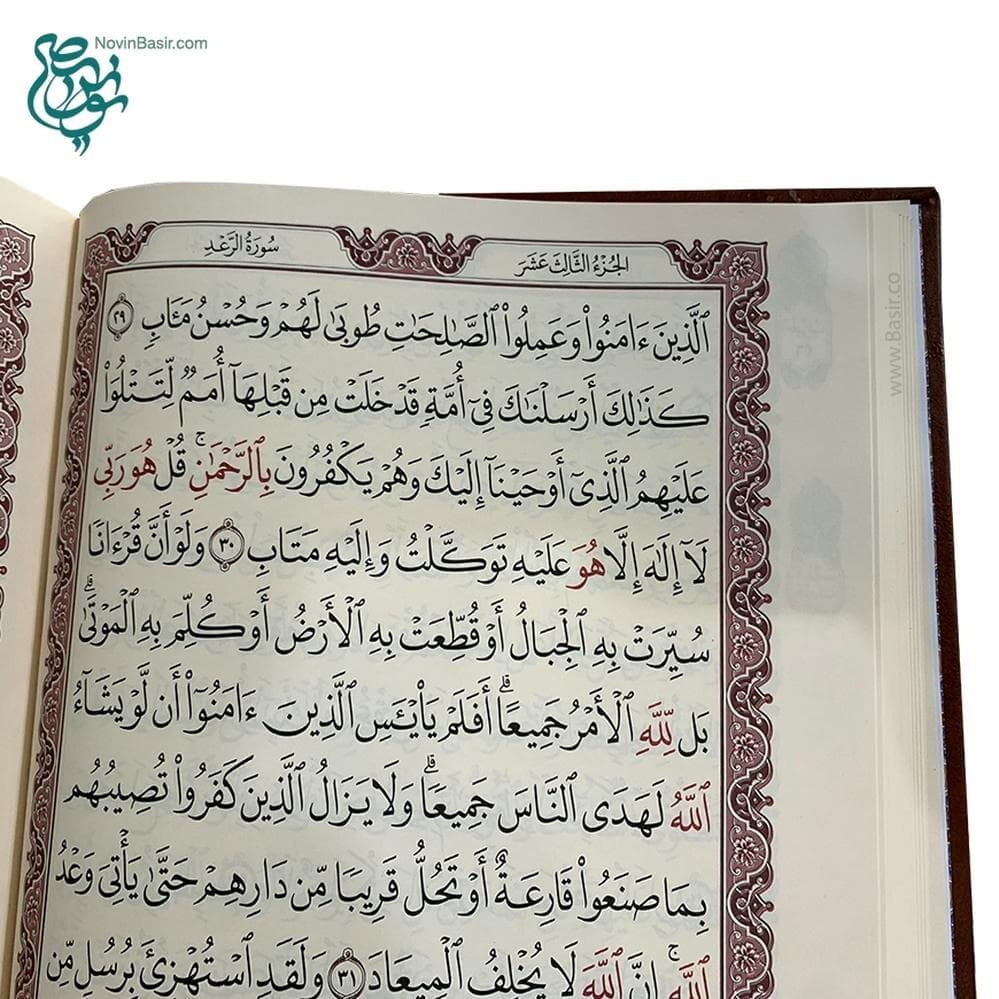 NovinBasir.com
سُورَةُ الرَّعْدِ
الجُزْءُ الثَّالِثَ عَشَرَ
www.Basir.co
ٱلَّذِينَ ءَامَنُوا۟ وَعَمِلُوا۟ ٱلصَّـٰلِحَـٰتِ طُوبَىٰ لَهُمْ وَحُسْنُ مَـَٔابٍ ٢٩
كَذَٰلِكَ أَرْسَلْنَـٰكَ فِىٓ أُمَّةٍ قَدْ خَلَتْ مِن قَبْلِهَآ أُمَمٌ لِّتَتْلُوَا۟
عَلَيْهِمُ ٱلَّذِىٓ أَوْحَيْنَآ إِلَيْكَ وَهُمْ يَكْفُرُونَ بِٱلرَّحْمَـٰنِ ۚ قُلْ هُوَ رَبِّى
لَآ إِلَـٰهَ إِلَّا هُوَ عَلَيْهِ تَوَكَّلْتُ وَإِلَيْهِ مَتَابِ ٣٠ وَلَوْ أَنَّ قُرْءَانًا
سُيِّرَتْ بِهِ ٱلْجِبَالُ أَوْ قُطِّعَتْ بِهِ ٱلْأَرْضُ أَوْ كُلِّمَ بِهِ ٱلْمَوْتَىٰ ۗ
بَل لِّلَّهِ ٱلْأَمْرُ جَمِيعًا ۗ أَفَلَمْ يَا۟يْـَٔسِ ٱلَّذِينَ ءَامَنُوٓا۟ أَن لَّوْ يَشَآءُ
ٱللَّهُ لَهَدَى ٱلنَّاسَ جَمِيعًا ۗ وَلَا يَزَالُ ٱلَّذِينَ كَفَرُوا۟ تُصِيبُهُم
بِمَا صَنَعُوا۟ قَارِعَةٌ أَوْ تَحُلُّ قَرِيبًا مِّن دَارِهِمْ حَتَّىٰ يَأْتِىَ وَعْدُ
ٱللَّهِ ۚ إِنَّ ٱللَّهَ لَا يُخْلِفُ ٱلْمِيعَادَ ٣١ وَلَقَدِ ٱسْتُهْزِئَ بِرُسُلٍ مِّن